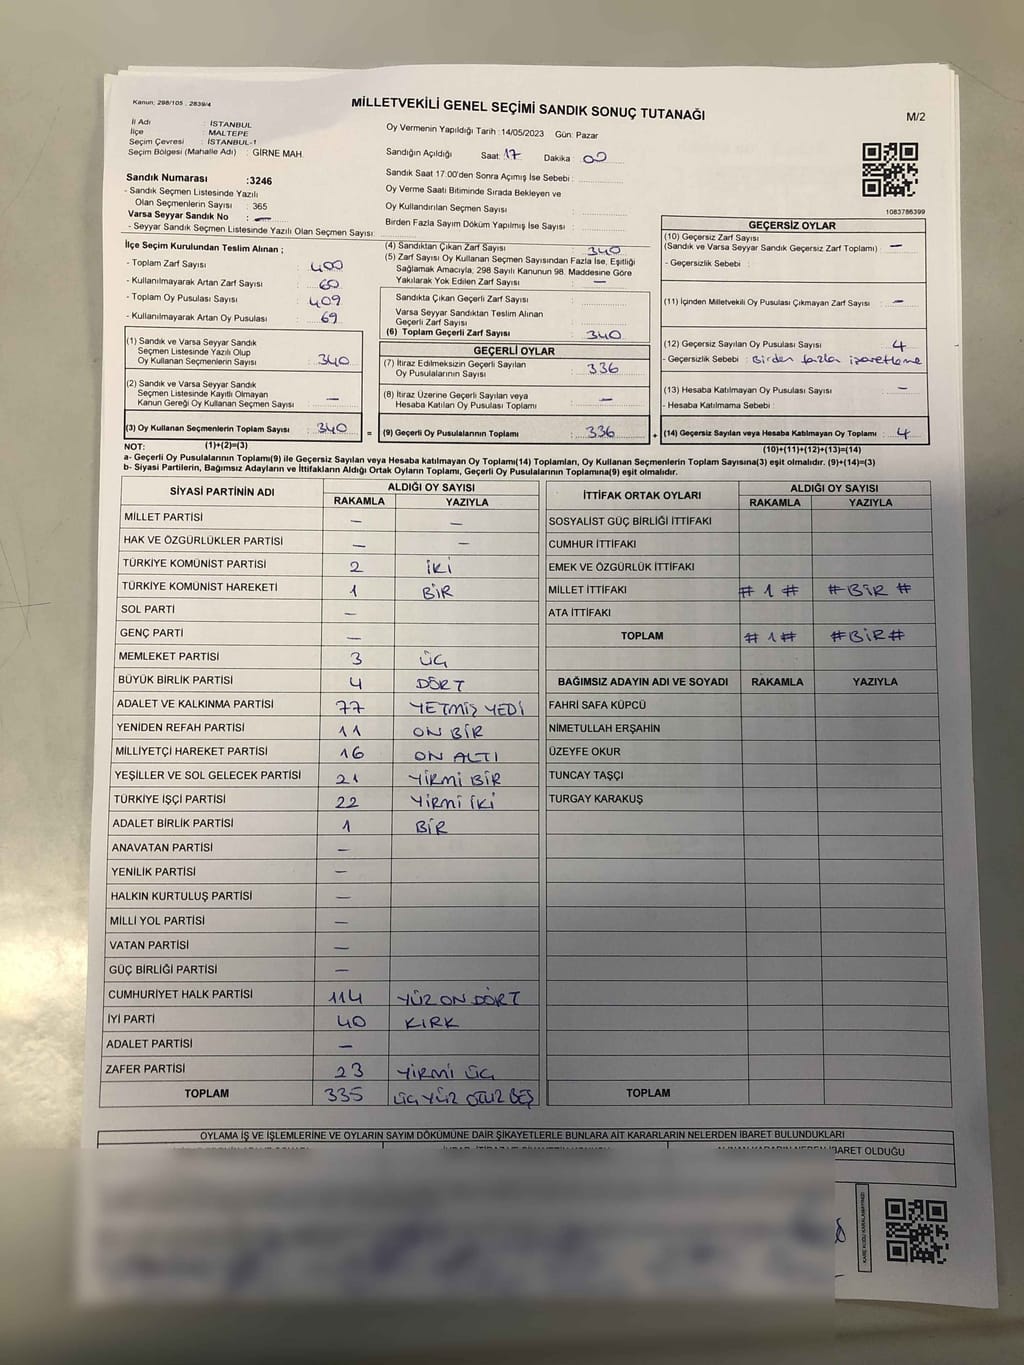 Kanun: 298/105 , 2839/4
MİLLETVEKİLİ GENEL SEÇİMİ SANDIK SONUÇ TUTANAĞI
M/2
İl Adı : İSTANBUL
İlçe : MALTEPE
Seçim Çevresi : İSTANBUL-1
Seçim Bölgesi (Mahalle Adı) : GİRNE MAH.
Oy Vermenin Yapıldığı Tarih : 14/05/2023 Gün: Pazar
Sandığın Açıldığı Saat: 17 Dakika : 00
Sandık Saat 17.00'den Sonra Açımış İse Sebebi :
Oy Verme Saati Bitiminde Sırada Bekleyen ve
Oy Kullandırılan Seçmen Sayısı :
Birden Fazla Sayım Döküm Yapılmış İse Sayısı :
Sandık Numarası :3246
- Sandık Seçmen Listesinde Yazılı
Olan Seçmenlerin Sayısı : 365
Varsa Seyyar Sandık No : —
- Seyyar Sandık Seçmen Listesinde Yazılı Olan Seçmen Sayısı:
1083786399
İlçe Seçim Kurulundan Teslim Alınan ;
- Toplam Zarf Sayısı : 400
- Kullanılmayarak Artan Zarf Sayısı : 60
- Toplam Oy Pusulası Sayısı : 409
- Kullanılmayarak Artan Oy Pusulası : 69
(1) Sandık ve Varsa Seyyar Sandık
Seçmen Listesinde Yazılı Olup
Oy Kullanan Seçmenlerin Sayısı : 340
(2) Sandık ve Varsa Seyyar Sandık
Seçmen Listesinde Kayıtlı Olmayan
Kanun Gereği Oy Kullanan Seçmen Sayısı : —
(3) Oy Kullanan Seçmenlerin Toplam Sayısı : 340
(1)+(2)=(3)
(4) Sandıktan Çıkan Zarf Sayısı : 340
(5) Zarf Sayısı Oy Kullanan Seçmen Sayısından Fazla İse, Eşitliği
Sağlamak Amacıyla, 298 Sayılı Kanunun 98. Maddesine Göre
Yakılarak Yok Edilen Zarf Sayısı : —
Sandıkta Çıkan Geçerli Zarf Sayısı :
Varsa Seyyar Sandıktan Teslim Alınan
Geçerli Zarf Sayısı :
(6) Toplam Geçerli Zarf Sayısı : 340
GEÇERLİ OYLAR
(7) İtiraz Edilmeksizin Geçerli Sayılan
Oy Pusulalarının Sayısı : 336
(8) İtiraz Üzerine Geçerli Sayılan veya
Hesaba Katılan Oy Pusulası Toplamı : —
= (9) Geçerli Oy Pusulalarının Toplamı : 336
GEÇERSİZ OYLAR
(10) Geçersiz Zarf Sayısı
(Sandık ve Varsa Seyyar Sandık Geçersiz Zarf Toplamı) : —
- Geçersizlik Sebebi :
(11) İçinden Milletvekili Oy Pusulası Çıkmayan Zarf Sayısı : —
(12) Geçersiz Sayılan Oy Pusulası Sayısı : 4
- Geçersizlik Sebebi : Birden fazla işaretleme
(13) Hesaba Katılmayan Oy Pusulası Sayısı : —
- Hesaba Katılmama Sebebi :
+ (14) Geçersiz Sayılan veya Hesaba Katılmayan Oy Toplamı : 4
(10)+(11)+(12)+(13)=(14)
NOT:
a- Geçerli Oy Pusulaları Toplamı(9) ile Geçersiz Sayılan veya Hesaba katılmayan Oy Toplamı(14) Toplamları, Oy Kullanan Seçmenlerin Toplam Sayısına(3) eşit olmalıdır. (9)+(14)=(3)
b- Siyasi Partilerin, Bağımsız Adayların ve İttifakların Aldığı Ortak Oyların Toplamı, Geçerli Oy Pusulalarının Toplamına(9) eşit olmalıdır.
SİYASİ PARTİNİN ADI ALDIĞI OY SAYISI
RAKAMLA YAZIYLA
MİLLET PARTİSİ — —
HAK VE ÖZGÜRLÜKLER PARTİSİ — —
TÜRKİYE KOMÜNİST PARTİSİ 2 İKİ
TÜRKİYE KOMÜNİST HAREKETİ 1 BİR
SOL PARTİ —
GENÇ PARTİ —
MEMLEKET PARTİSİ 3 ÜÇ
BÜYÜK BİRLİK PARTİSİ 4 DÖRT
ADALET VE KALKINMA PARTİSİ 77 YETMİŞ YEDİ
YENİDEN REFAH PARTİSİ 11 ON BİR
MİLLİYETÇİ HAREKET PARTİSİ 16 ON ALTI
YEŞİLLER VE SOL GELECEK PARTİSİ 21 YİRMİ BİR
TÜRKİYE İŞÇİ PARTİSİ 22 YİRMİ İKİ
ADALET BİRLİK PARTİSİ 1 BİR
ANAVATAN PARTİSİ —
YENİLİK PARTİSİ —
HALKIN KURTULUŞ PARTİSİ —
MİLLİ YOL PARTİSİ —
VATAN PARTİSİ —
GÜÇ BİRLİĞİ PARTİSİ —
CUMHURİYET HALK PARTİSİ 114 YÜZ ON DÖRT
İYİ PARTİ 40 KIRK
ADALET PARTİSİ —
ZAFER PARTİSİ 23 YİRMİ ÜÇ
TOPLAM 335 ÜÇ YÜZ OTUZ BEŞ
İTTİFAK ORTAK OYLARI ALDIĞI OY SAYISI
RAKAMLA YAZIYLA
SOSYALİST GÜÇ BİRLİĞİ İTTİFAKI
CUMHUR İTTİFAKI
EMEK VE ÖZGÜRLÜK İTTİFAKI
MİLLET İTTİFAKI # 1 # # BİR #
ATA İTTİFAKI
TOPLAM # 1 # # BİR #
BAĞIMSIZ ADAYIN ADI VE SOYADI RAKAMLA YAZIYLA
FAHRİ SAFA KÜPCÜ
NİMETULLAH ERŞAHİN
ÜZEYFE OKUR
TUNCAY TAŞÇI
TURGAY KARAKUŞ
TOPLAM
OYLAMA İŞ VE İŞLEMLERİNE VE OYLARIN SAYIM DÖKÜMÜNE DAİR ŞİKAYETLERLE BUNLARA AİT KARARLARIN NELERDEN İBARET BULUNDUKLARI
İBARET OLDUĞU